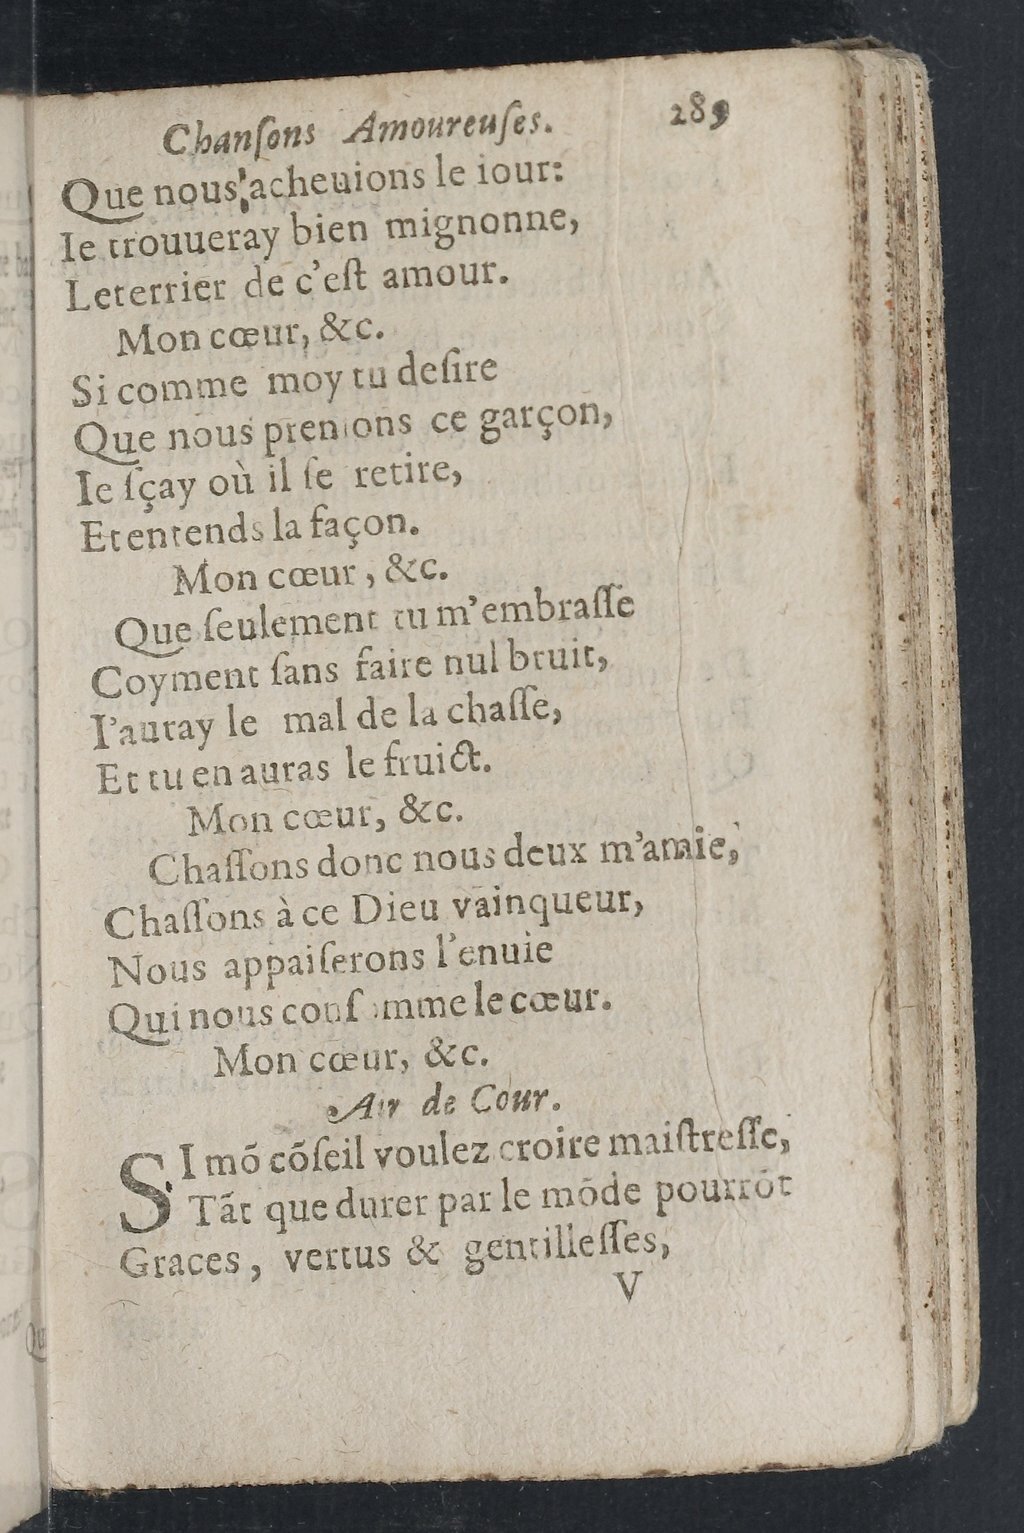 Chanſons Amoureuſes. 289
Que nous acheuions le iour:
Ie trouueray bien mignonne,
Le terrier de c'eſt amour.
Mon cœur, &c.
Si comme moy tu deſire
Que nous prenions ce garçon,
Ie ſçay où il ſe retire,
Et entends la façon.
Mon cœur, &c.
Que ſeulement tu m'embraſſe
Coyment ſans faire nul bruit,
I'auray le mal de la chaſſe,
Et tu en auras le fruict.
Mon cœur, &c.
Chaſſons donc nous deux m'amie,
Chaſſons à ce Dieu vainqueur,
Nous appaiſerons l'enuie
Qui nous conſomme le cœur.
Mon cœur, &c.
Air de Cour.
SI mõ cõſeil voulez croire maiſtreſſe,
Tãt que durer par le mõde pourrõt
Graces, vertus & gentilleſſes,
V